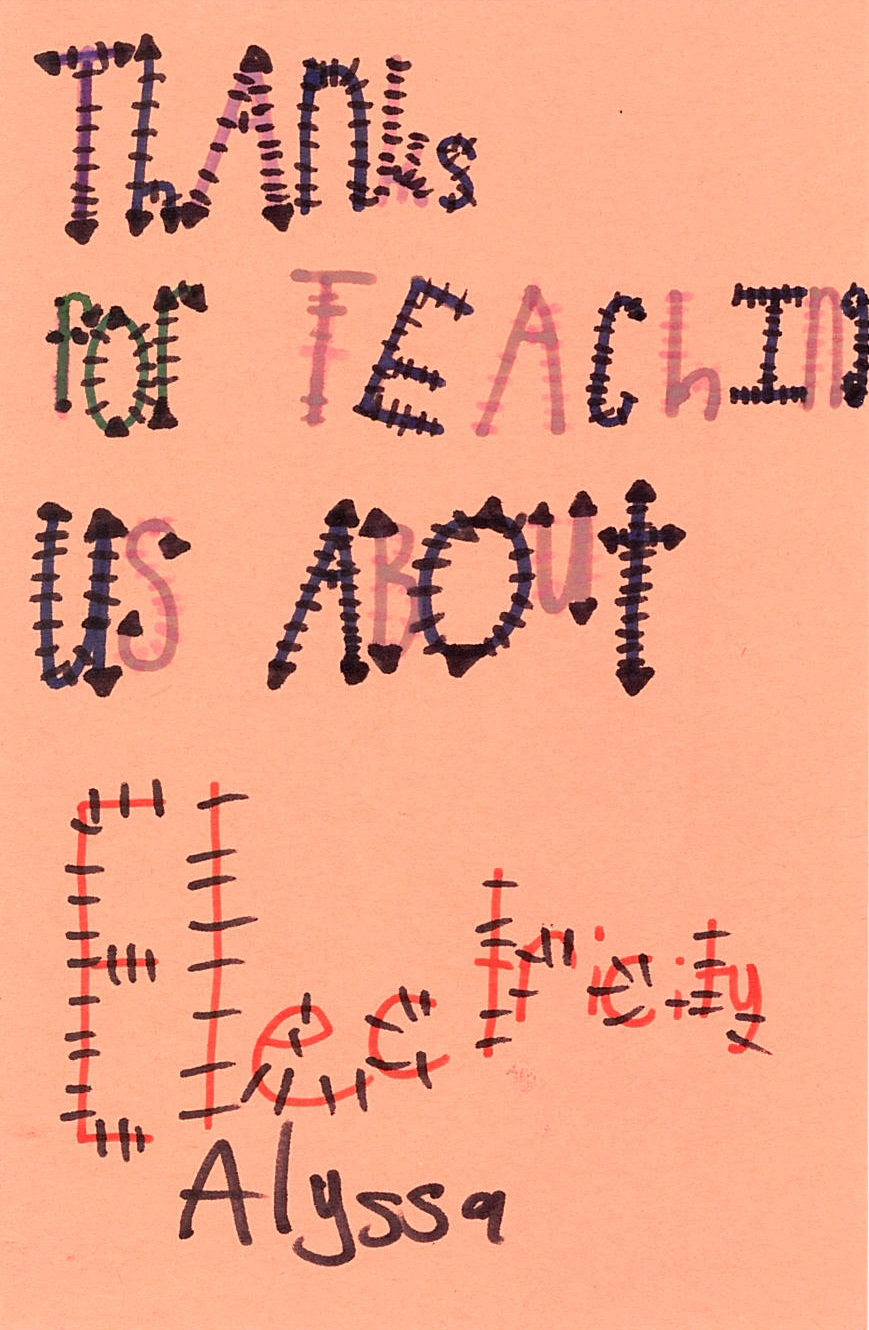 ThAnks
for TEAChINg
US ABOUt
Electricity
Alyssa